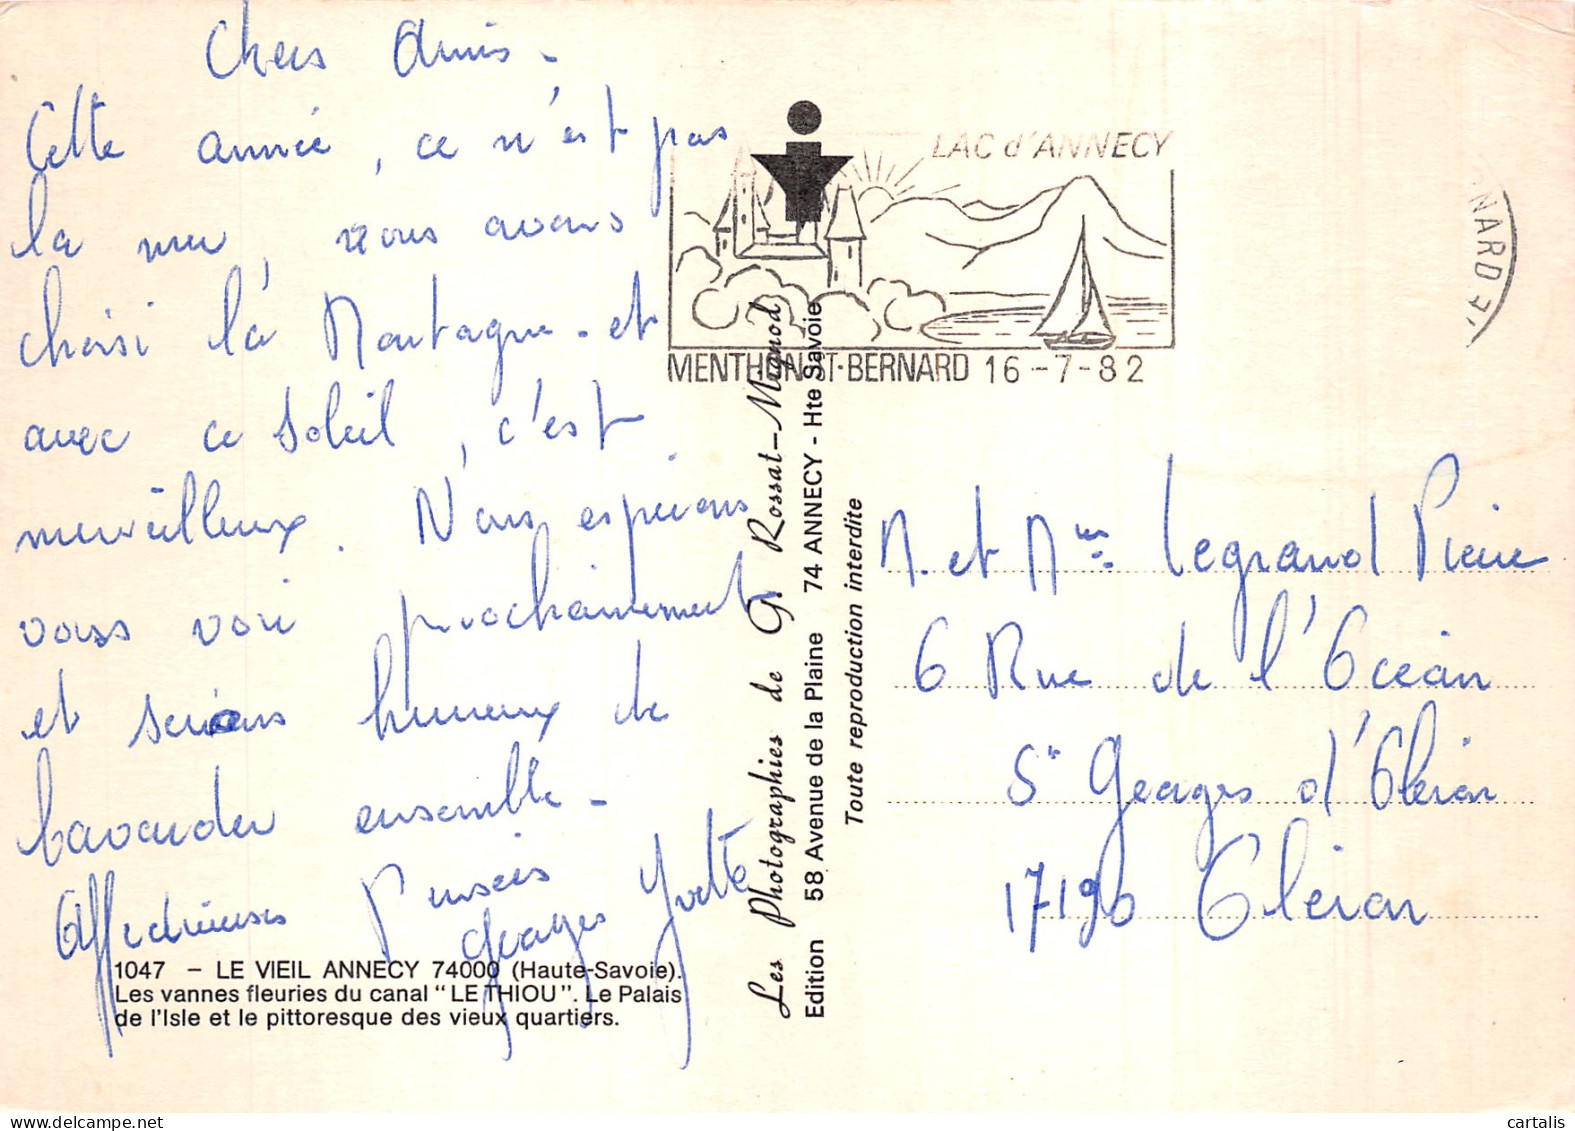 Chers Amis -
Cette année, ce n'est pas
la mer, nous avons
choisi la Montagne - et
avec ce soleil, c'est
merveilleux. Nous espérons
vous voir prochainement
et serions heureux de
bavarder ensemble -
Affectueuses Pensées
Georges Yvette
1047 - LE VIEIL ANNECY 74000 (Haute-Savoie).
Les vannes fleuries du canal "LE THIOU". Le Palais
de l'Isle et le pittoresque des vieux quartiers.
Les Photographies de G. Rossat-Mignod
Edition 58 Avenue de la Plaine 74 ANNECY - Hte Savoie
Toute reproduction interdite
LAC d'ANNECY
MENTHON ST-BERNARD 16-7-82
NARD
M. et Mme Legrand Pierre
6 Rue de l'Océan
St Georges d'Oléron
17190 Oléron
cartalis
delcampe.net